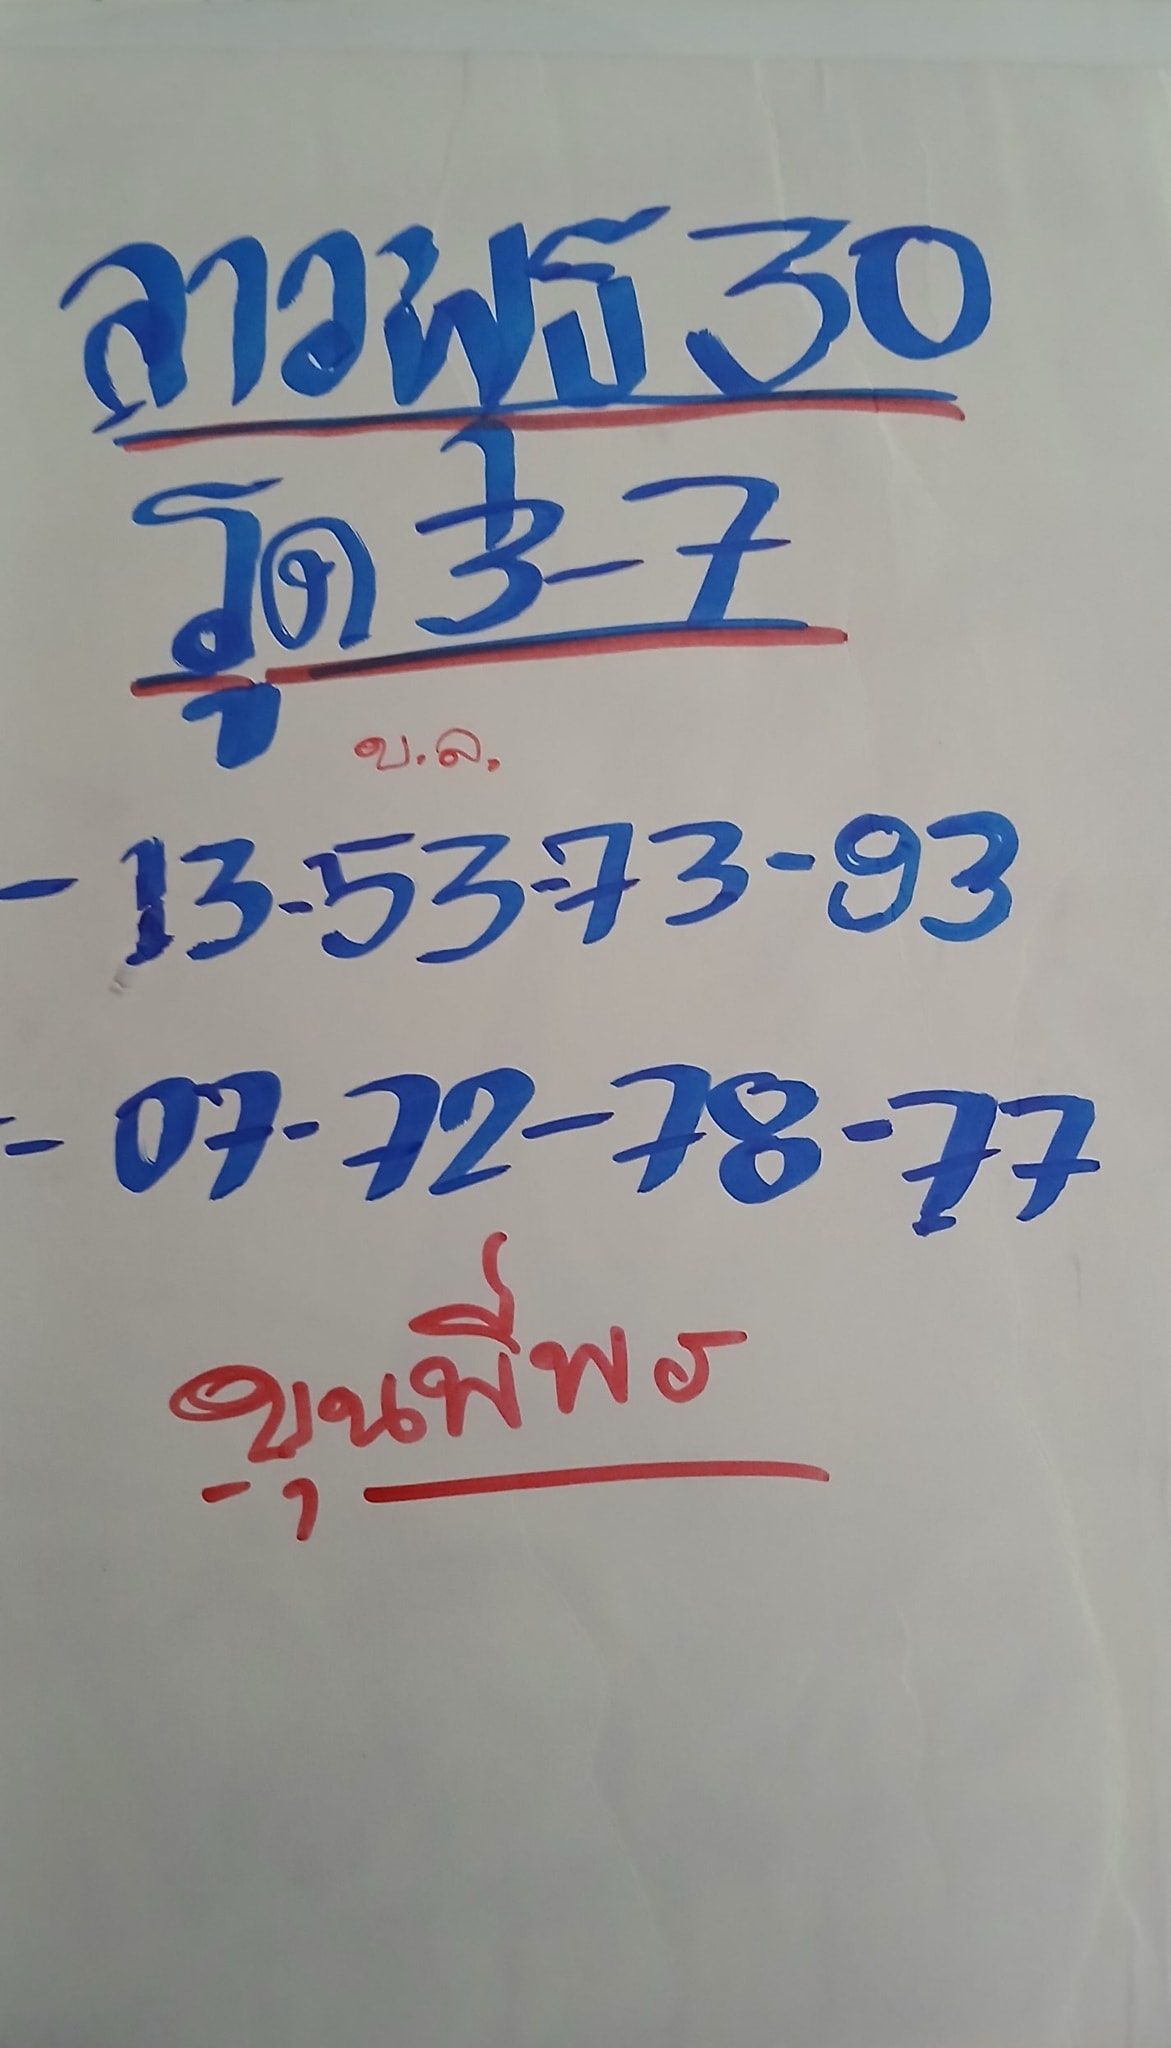 ลาวพุธ 30
รูด 3-7
บ.ล.
- 13-53-73-93
- 07-72-78-77
ขุนพี่พร